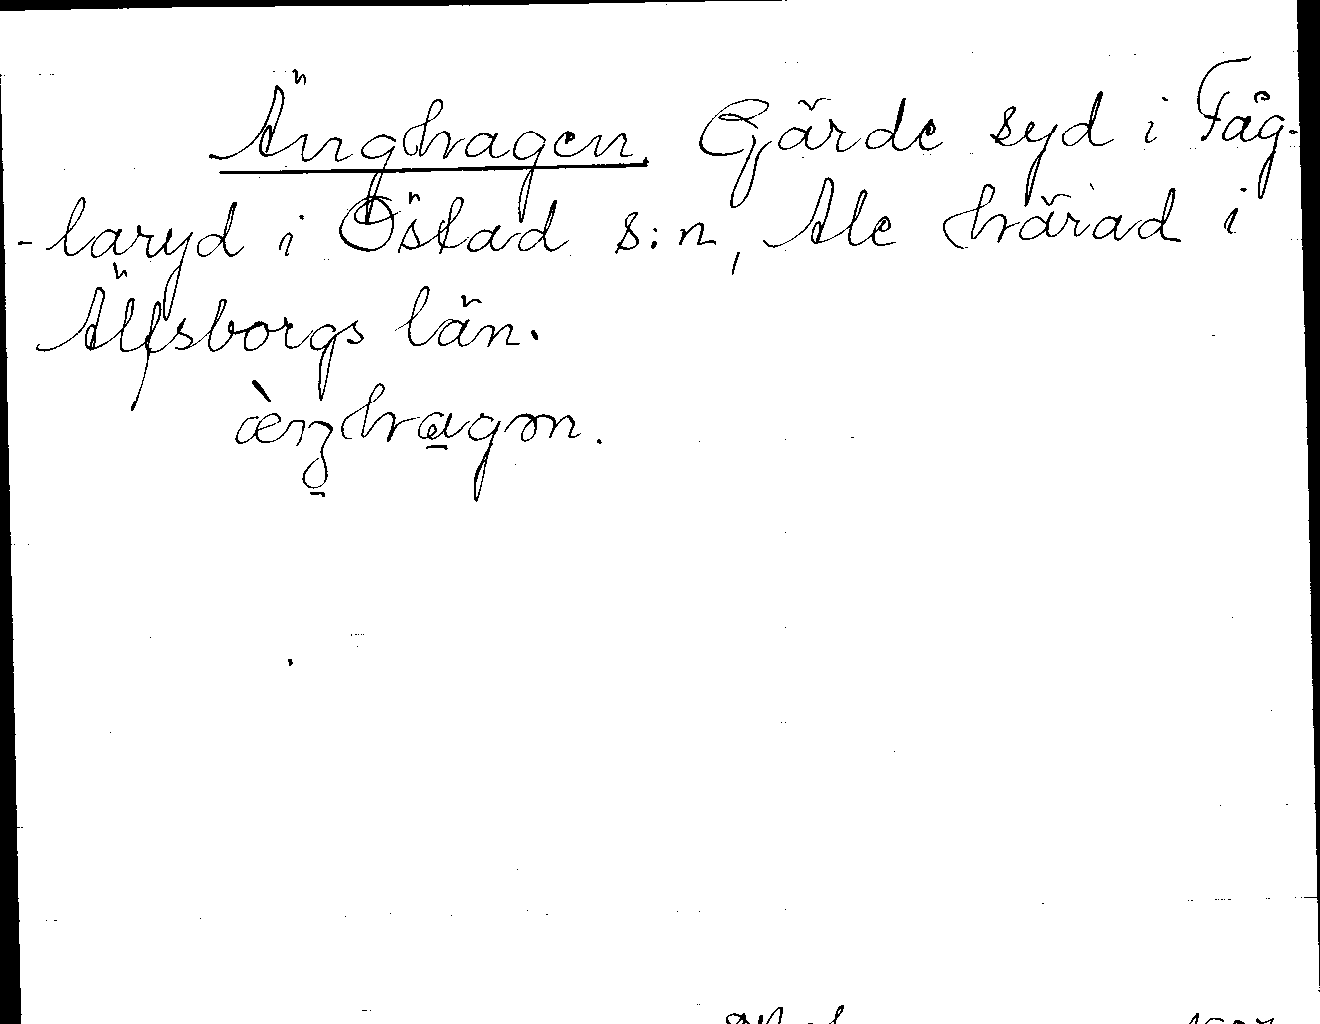 Änghagen. Gärde syd i Fåg-
-laryd i Östad s:n, Ale härad i
Älfsborgs län.
æ̀ŋhagən.